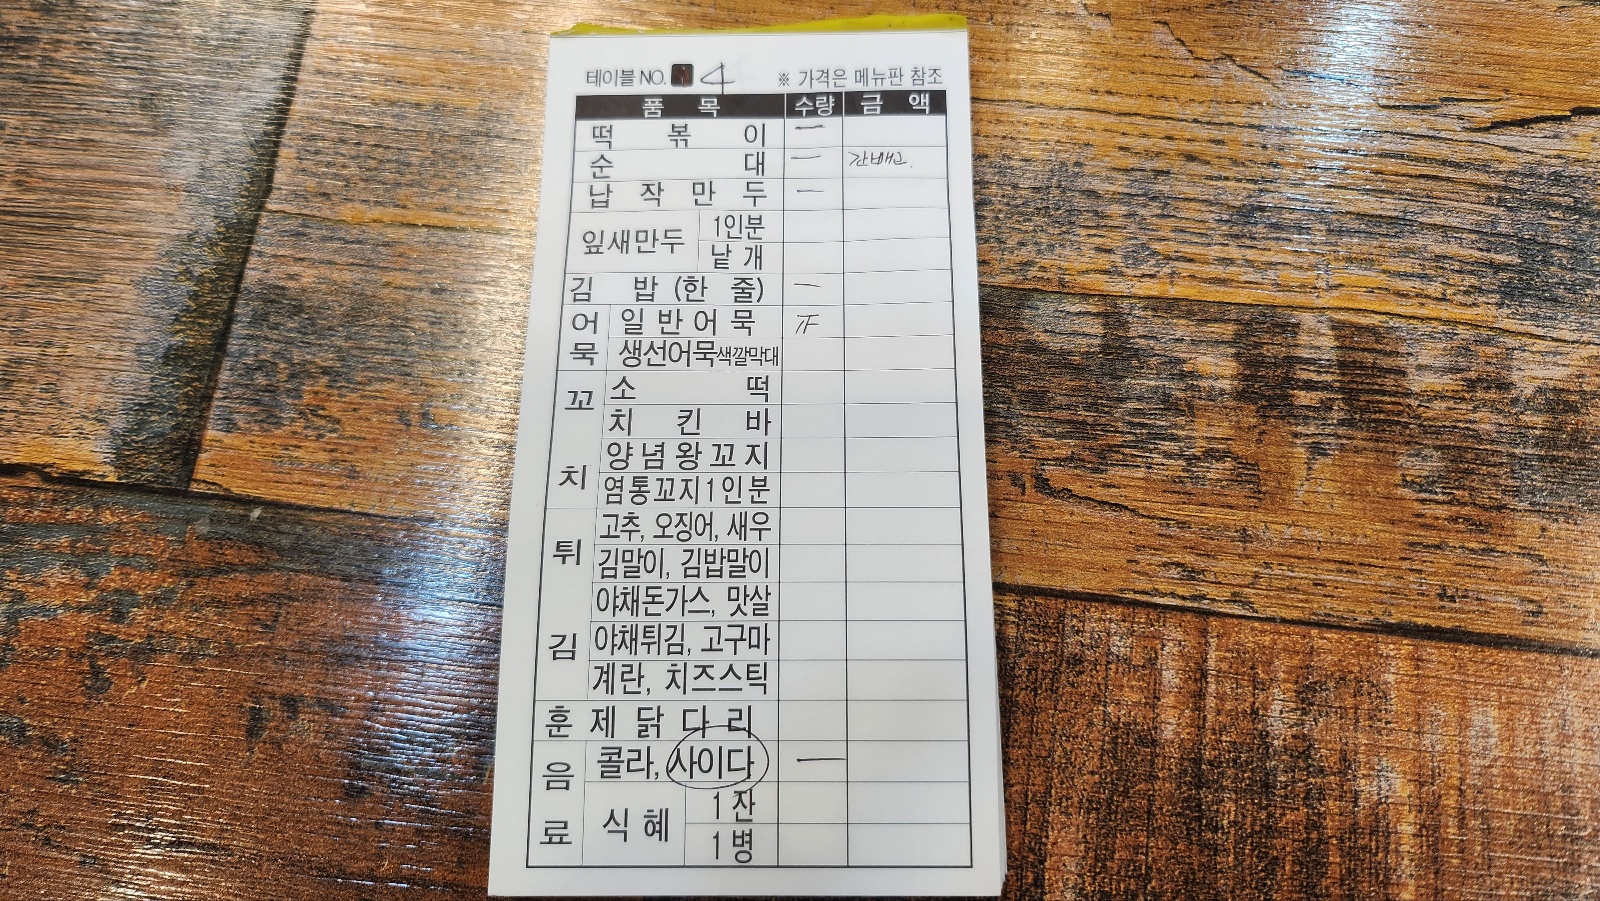 테이블 NO. 4 ※ 가격은 메뉴판 참조
품목 수량 금액
떡볶이 一
순대 一 간빼고.
납작만두 一
잎새만두 1인분
낱개
김밥(한 줄) 一
어묵 일반어묵 正
생선어묵색깔막대
꼬치 소떡
치킨바
양념왕꼬지
염통꼬지1인분
튀김 고추, 오징어, 새우
김말이, 김밥말이
야채돈가스, 맛살
야채튀김, 고구마
계란, 치즈스틱
훈제닭다리
음료 콜라, 사이다 一
식혜 1잔
1병